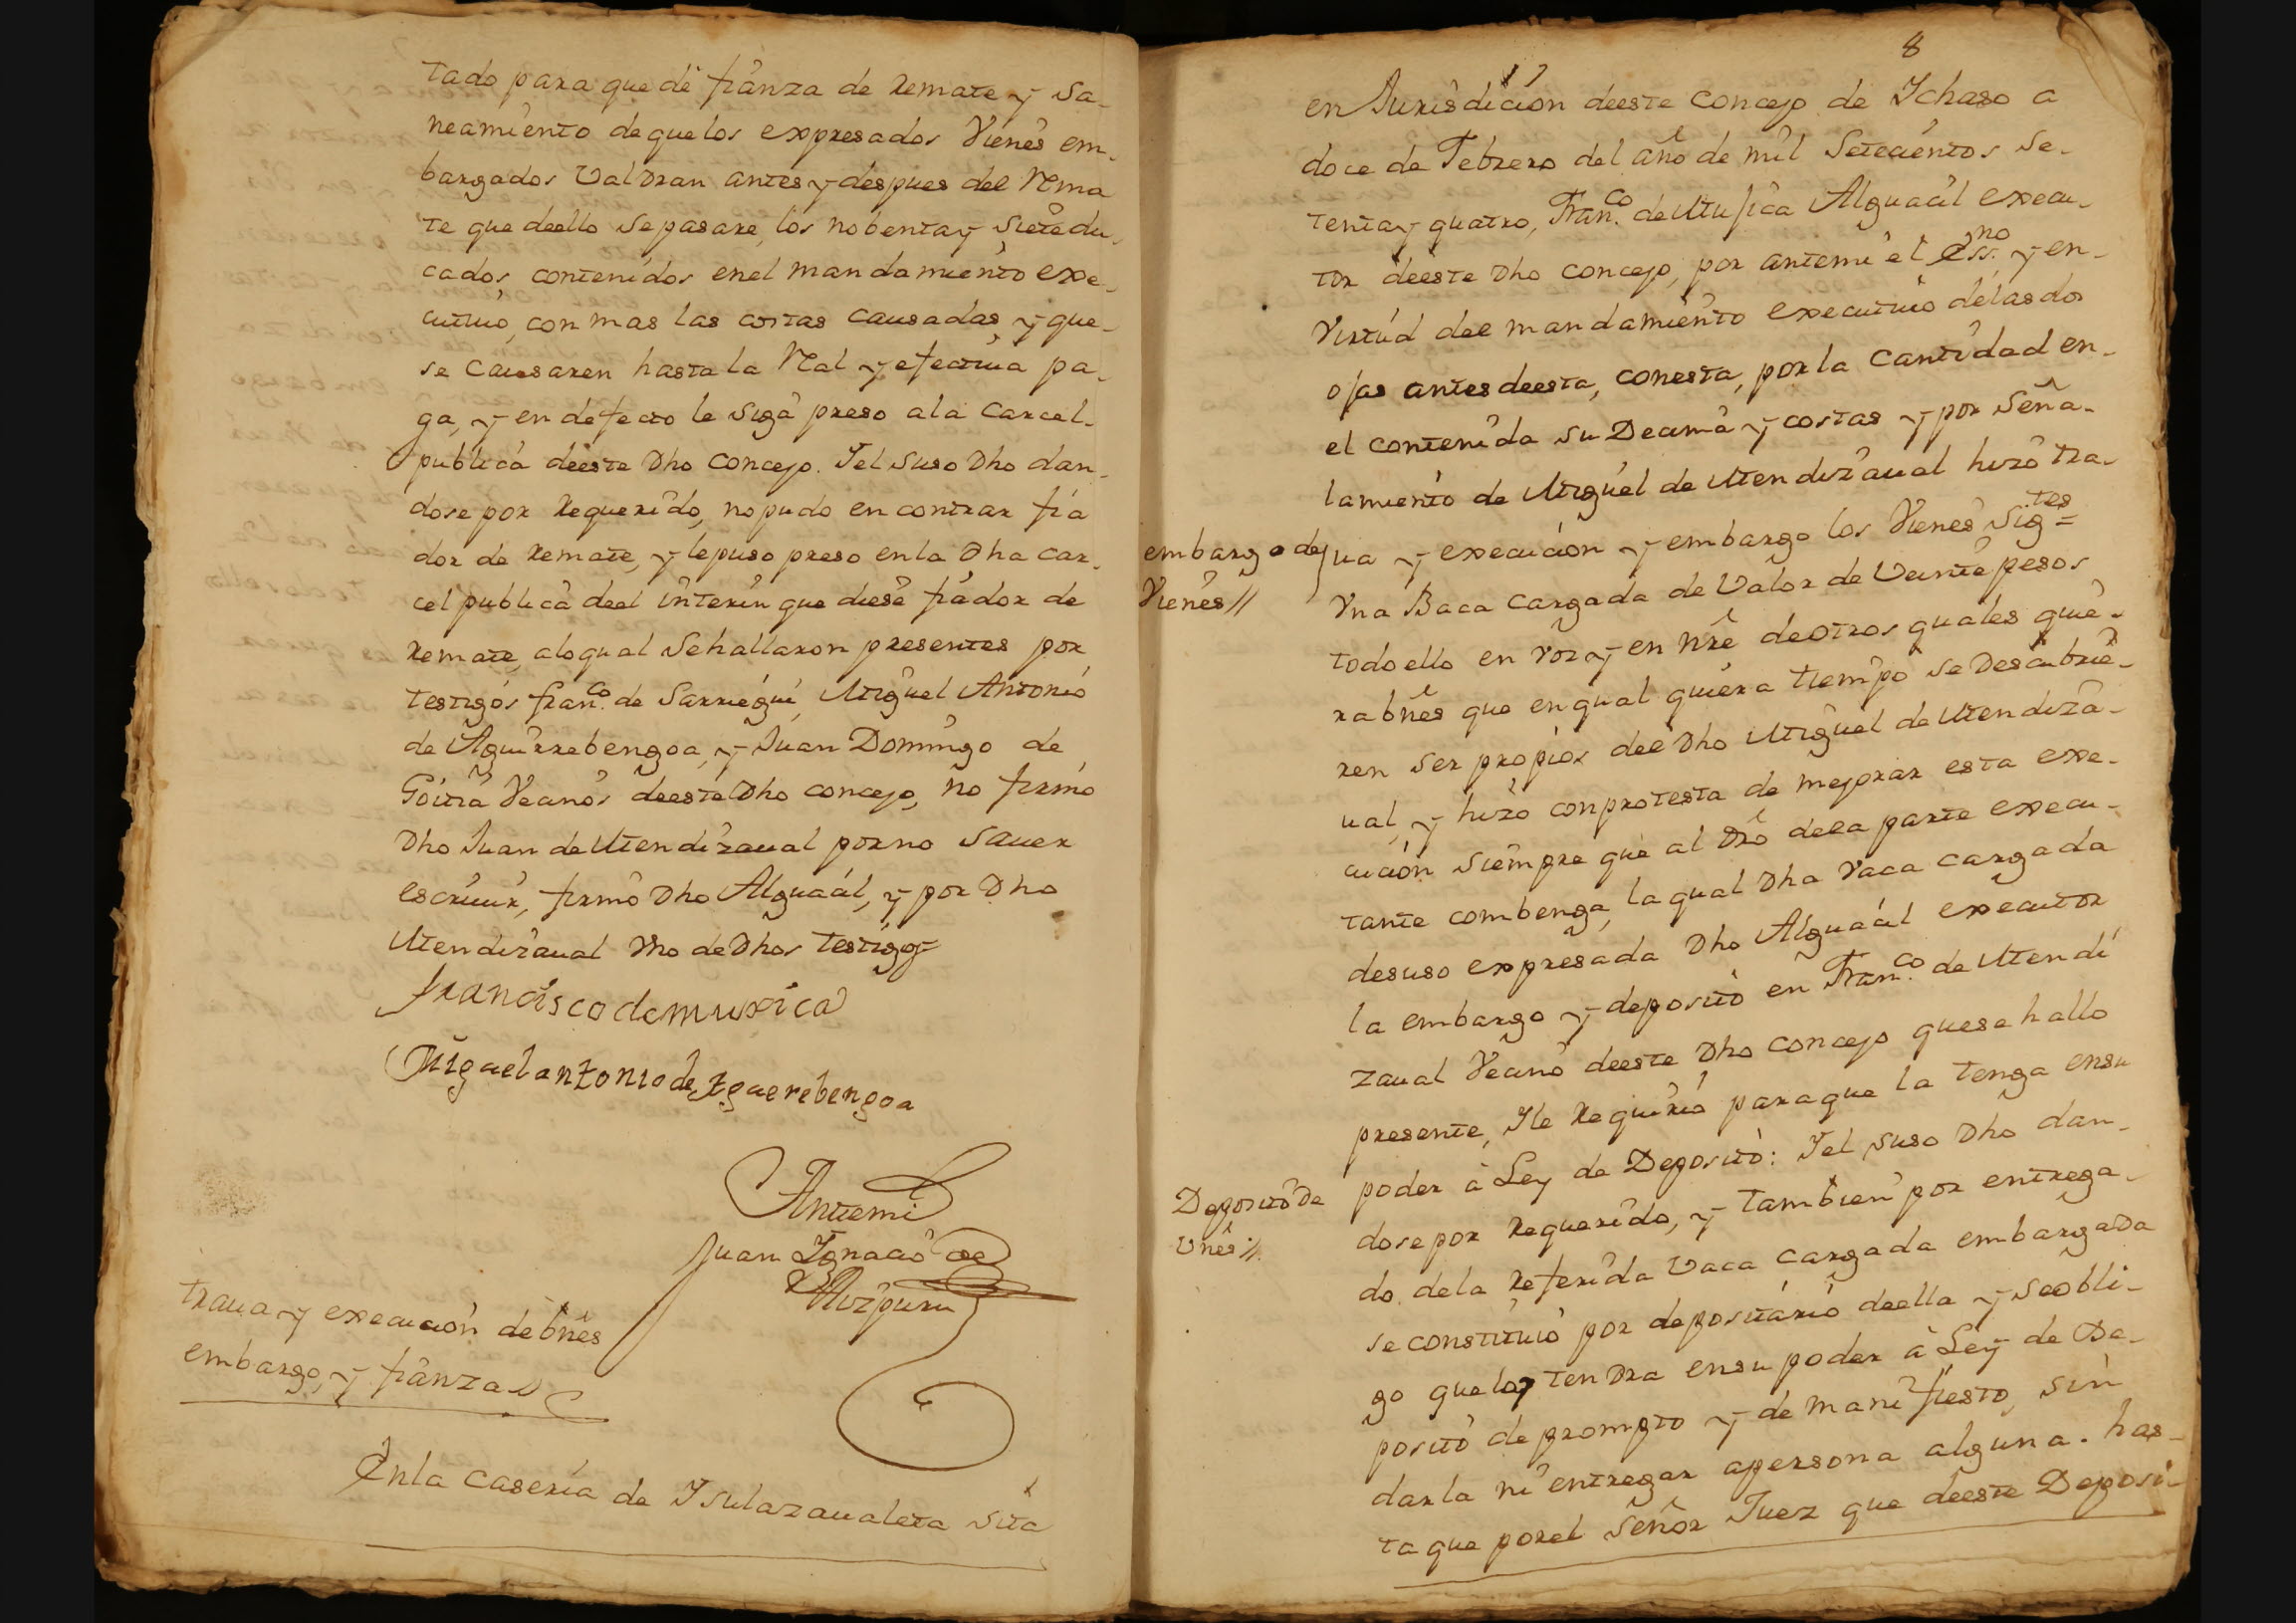 tado para que dé fianza de Remate y Sa-
neamiento de que los expresados Vienes em-
bargados Valdran antes y despues del Rma
te que deello Se pasare, los nobenta y Siete du-
cados contenidos en el mandamiento exe-
cutiuo, con mas las costas causadas, y que-
se causaren hasta la Rl y efectiua pa-
ga, y en defecto le Siga preso a la Carcel-
publica deeste Dho Concejo. Y el Suso Dho dan-
dose por Requerido, no pudo encontrar fia
dor de Remate, y le puso preso en la Dha Car-
cel publica deel interin que diese fiador de
Remate, alo qual Se hallaron presentes por
testigos fran.co de Sarriegui, Miguel Antonio
de Aguirrebengoa, y Juan Domingo de
Goitia Vecinos deeste Dho concejo, no firmo
Dho Juan de Mendizaual por no Sauer
escriuir, firmó Dho Alguacil, y por Dho
Mendizaual Vno de Dhos testigos
francisco de muxica
Miguel antonio de Aguerebengoa
Antemi
Juan Ignacio de
Aizpuru
traua y execucion de bñes
embargo, y fianza
En la Caseria de Ysulazaualeta Sita
8
17
en Jurisdicion deeste Concejo de Ychaso a
doce de Febrero del año de mil Setecientos Se-
tenta y quatro, Fran.co de Mujica Alguacil execu-
tor deeste Dho Concejo, por antemi el Ess.no y en-
Virtud del mandamiento executiuo de las dos
ojas antes deesta, conesta, por la Cantidad en-
el contenida su Decima y costas y por Seña-
lamiento de Miguel de Mendizaual hizo tra-
embargo de
Vienes //
ua y execucion y embargo los Vienes Sig.tes =
Vna Baca cargada de Valor de Veinte pesos
todo ello en voz y en nrê de otros quales quie-
ra bñes que en qual quiera tiempo se Descubrie-
ren ser propios del Dho Miguel de Mendiza-
ual, y hizo con protesta de mejorar esta exe-
cucion Siempre que al Dro dela parte execu-
tante combenga, la qual Dha Vaca cargada
desuso expresada Dho Alguacil executor
la embargo y deposito en Fran.co de Mendi
zaual Vecino deeste Dho Concejo que se hallo
presente, Y le Requirio para que la tenga en su
poder à Ley de Deposito: Y el suso Dho dan-
Deposito de
Vnes //
dose por Requerido, y tambien por entrega-
do dela Referida Vaca cargada embargada
se constituio por depositario deella y se obli-
go que la tendra en su poder à Ley de De-
posito de prompto y de manifiesto, sin
darla ni entregar apersona alguna. has-
ta que por el Señor Juez que deeste Deposi-